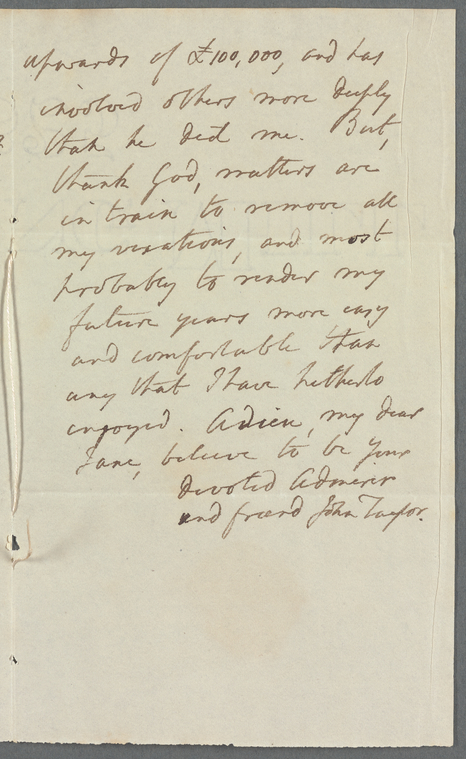 upwards of £100,000, and has
involved others more deeply
than he did me. But,
thank God, matters are
in train to remove all
my vexations, and most
probably to render my
future years more easy
and comfortable than
any that I have hitherto
enjoyed. Adieu, my dear
Jane, believe to be your
devoted Admirer
and friend John Taylor.